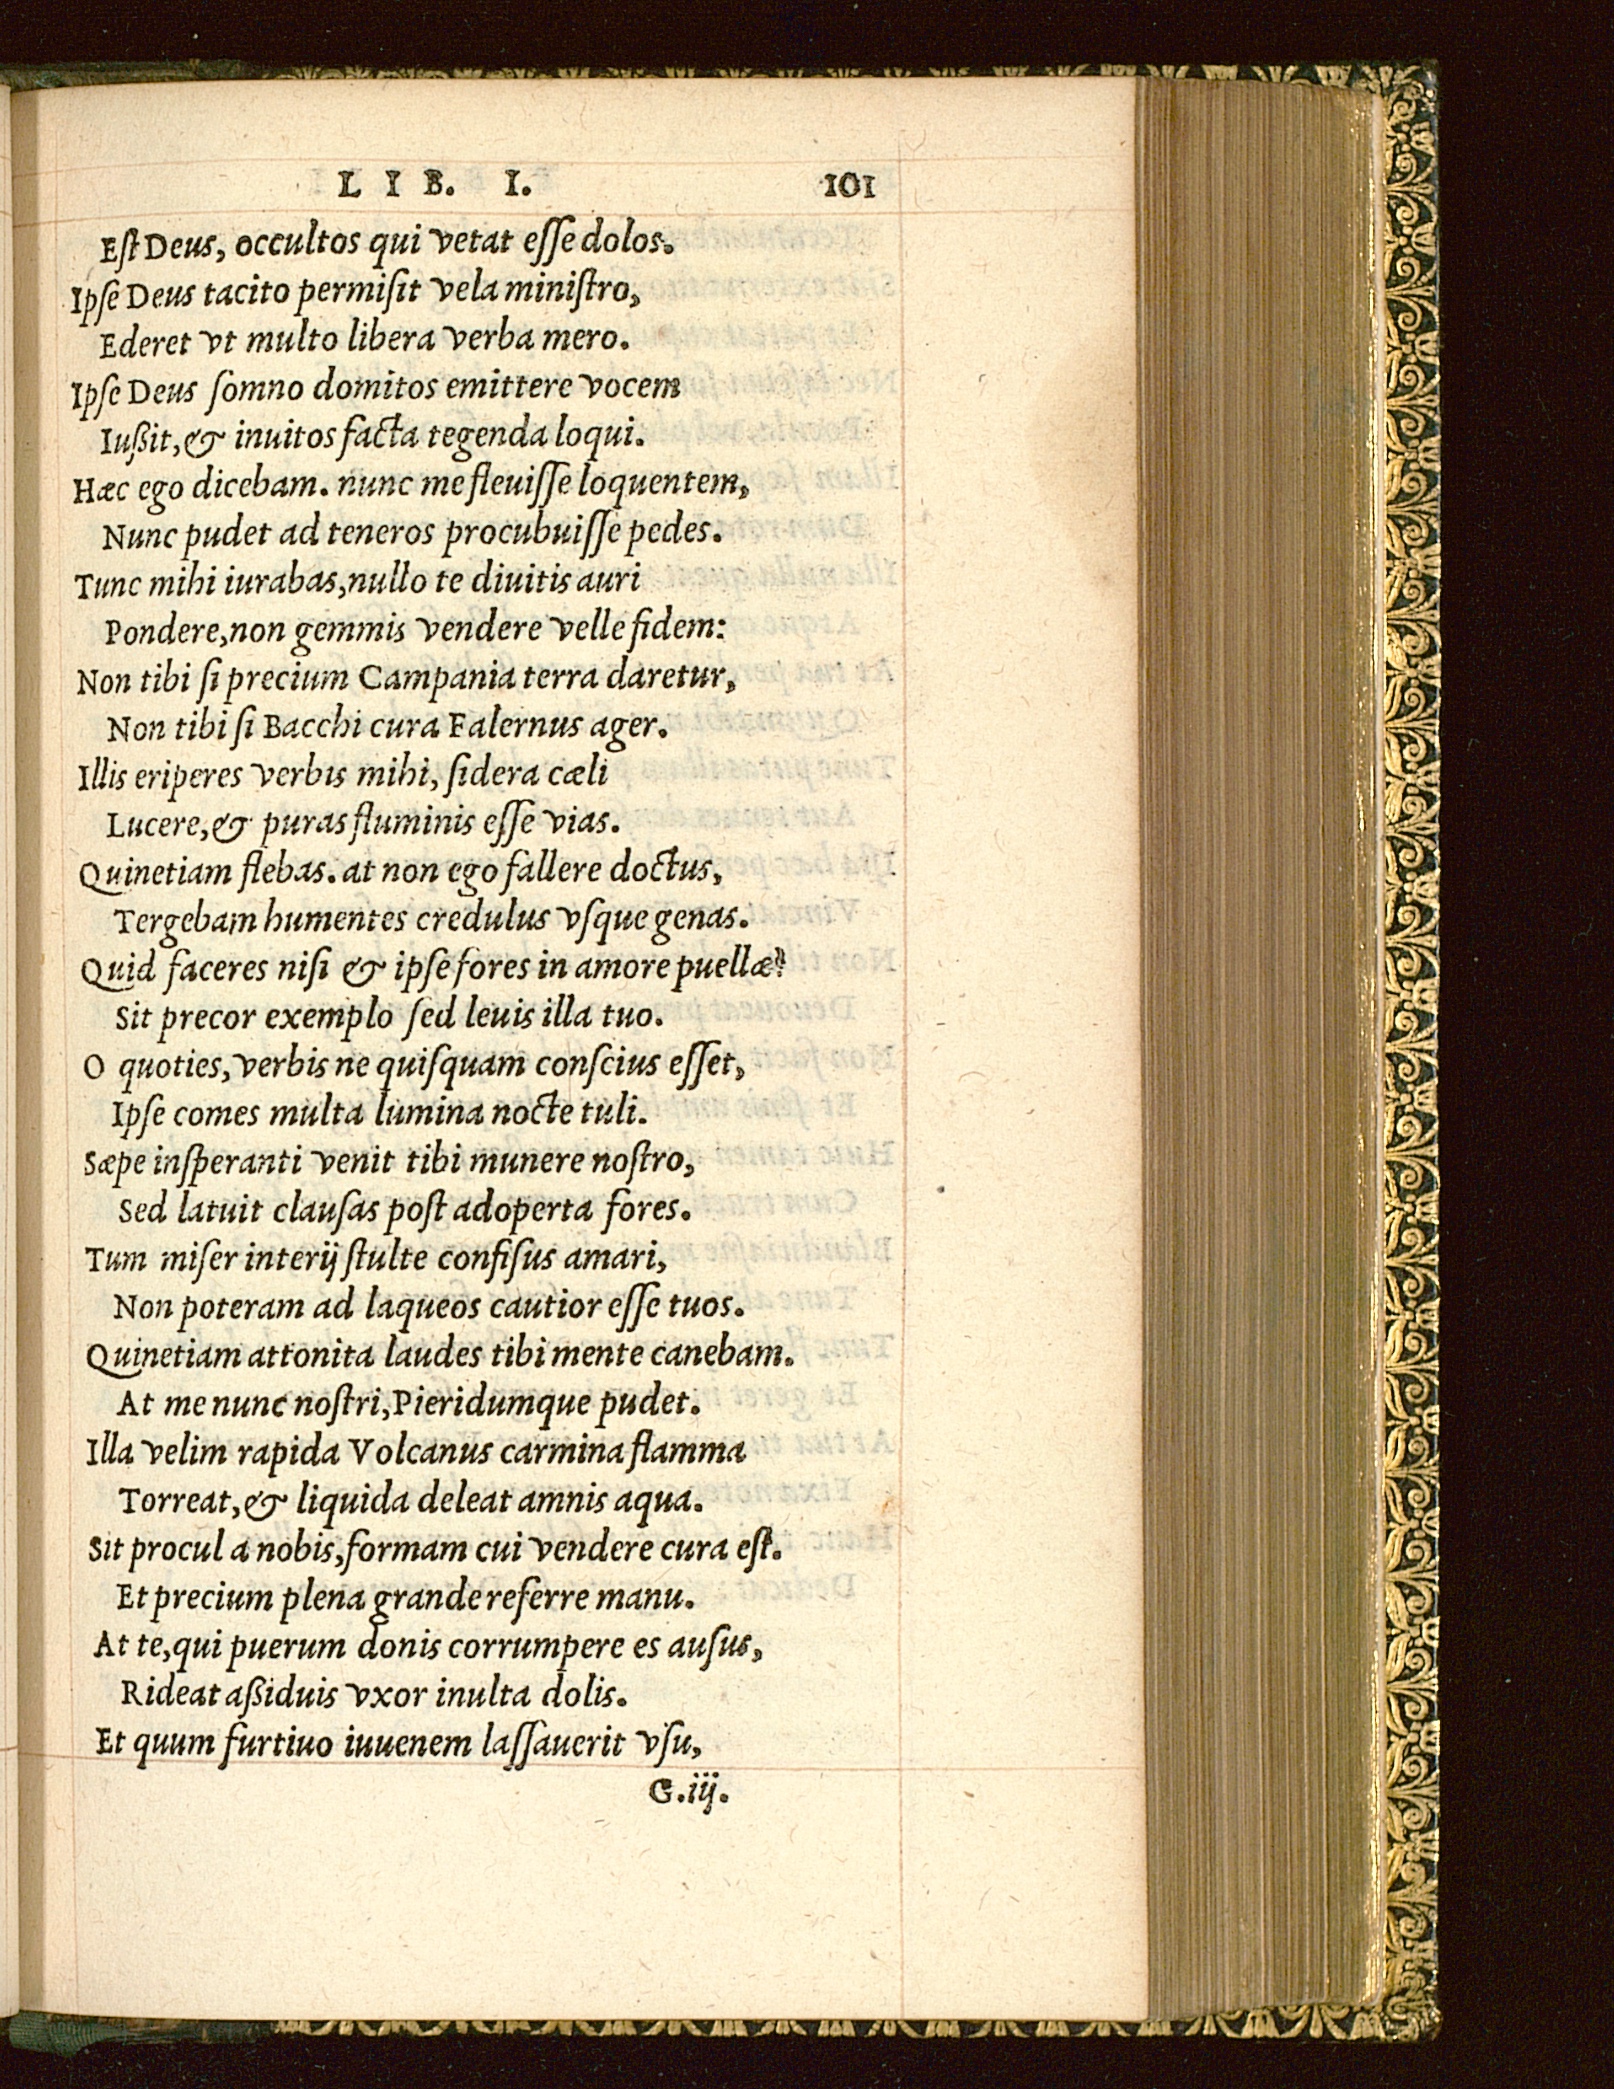 LIB. I. 101
Eſt Deus, occultos qui vetat eſſe dolos.
Ipſe Deus tacito permiſit vela miniſtro,
Ederet vt multo libera verba mero.
Ipſe Deus ſomno domitos emittere vocem
Iußit, & inuitos facta tegenda loqui.
Hæc ego dicebam. nunc me fleuiſſe loquentem,
Nunc pudet ad teneros procubuiſſe pedes.
Tunc mihi iurabas, nullo te diuitis auri
Pondere, non gemmis vendere velle fidem:
Non tibi ſi precium Campania terra daretur,
Non tibi ſi Bacchi cura Falernus ager.
Illis eriperes verbis mihi, ſidera cæli
Lucere, & puras fluminis eſſe vias.
Quinetiam flebas. at non ego fallere doctus,
Tergebam humentes credulus vſque genas.
Quid faceres niſi & ipſe fores in amore puellæ?
Sit precor exemplo ſed leuis illa tuo.
O quoties, verbis ne quiſquam conſcius eſſet,
Ipſe comes multa lumina nocte tuli.
Sæpe inſperanti venit tibi munere noſtro,
Sed latuit clauſas poſt adoperta fores.
Tum miſer interij ſtulte confiſus amari,
Non poteram ad laqueos cautior eſſe tuos.
Quinetiam attonita laudes tibi mente canebam.
At me nunc noſtri, Pieridumque pudet.
Illa velim rapida Volcanus carmina flamma
Torreat, & liquida deleat amnis aqua.
Sit procul a nobis, formam cui vendere cura eſt.
Et precium plena grande referre manu.
At te, qui puerum donis corrumpere es auſus,
Rideat aßiduis vxor inulta dolis.
Et quum furtiuo iuuenem laſſauerit vſu,
G.iij.